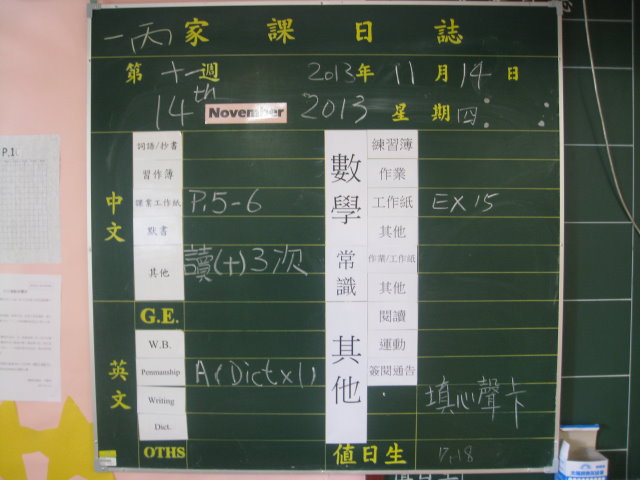 一丙家課日誌
第十一週 2013年11月14日
14th November 2013 星期四
中文
詞語/抄書
習作簿
課業工作紙 P.5-6
默書
其他 讀(十)3次
英文
G.E.
W.B.
Penmanship A(Dict x1)
Writing
Dict.
OTHS
數學
練習簿
作業
工作紙 EX15
其他
常識
作業/工作紙
其他
其他
閱讀
運動
簽閱通告
填心聲卡
值日生 7,18
P.10